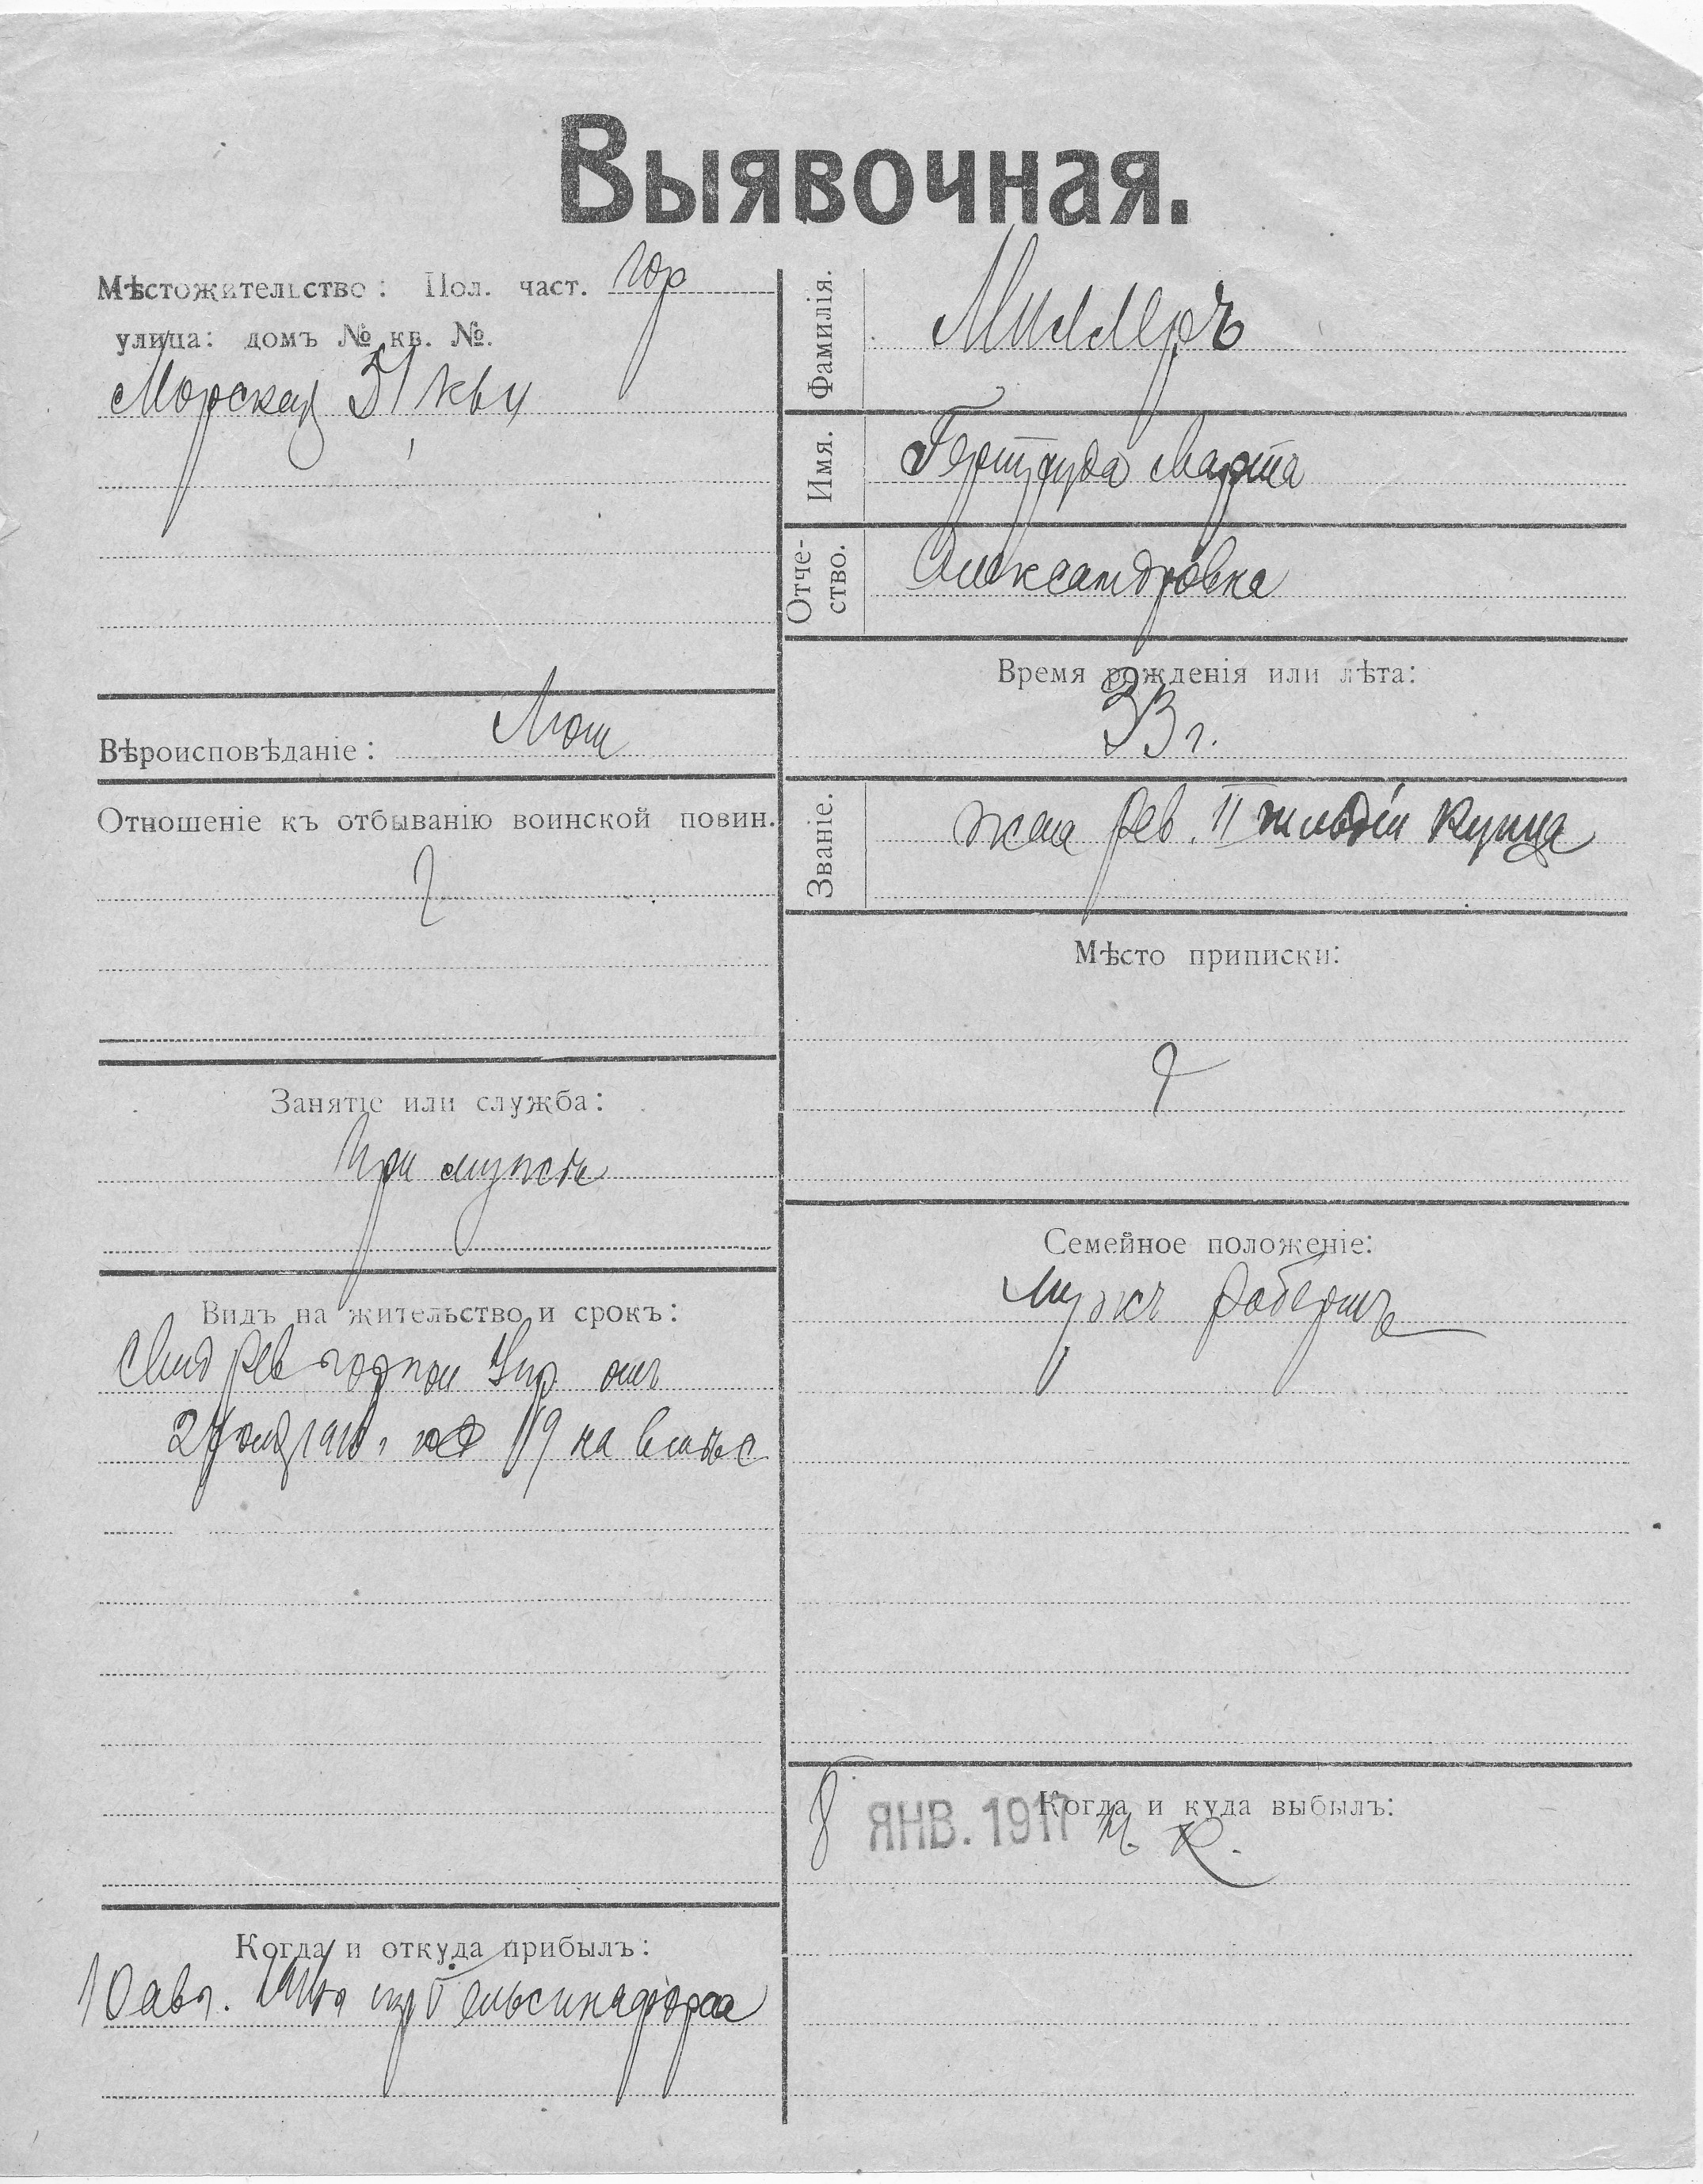 Выявочная.
Мѣстожительство: Пол. част. гор
улица: домъ № кв. №.
Морская 31 кв 4
Вѣроисповѣданіе: Лют
Отношеніе къ отбыванію воинской повин.
Занятіе или служба:
При мужѣ
Видъ на жительство и срокъ:
Свид Рев город Упр отъ
1916 г. 119 на
Когда и откуда прибылъ:
10 авг. 1916 из Гельсингфорса
Фамилія. Миллеръ
Имя. Гертруда Марта
Отче-
ство. Александровна
Время рожденія или лѣта:
33 г.
Званіе. жена Рев. II гильдіи купца
Мѣсто приписки:
Семейное положеніе:
Мужъ Робертъ
Когда и куда выбылъ:
8 ЯНВ. 1917